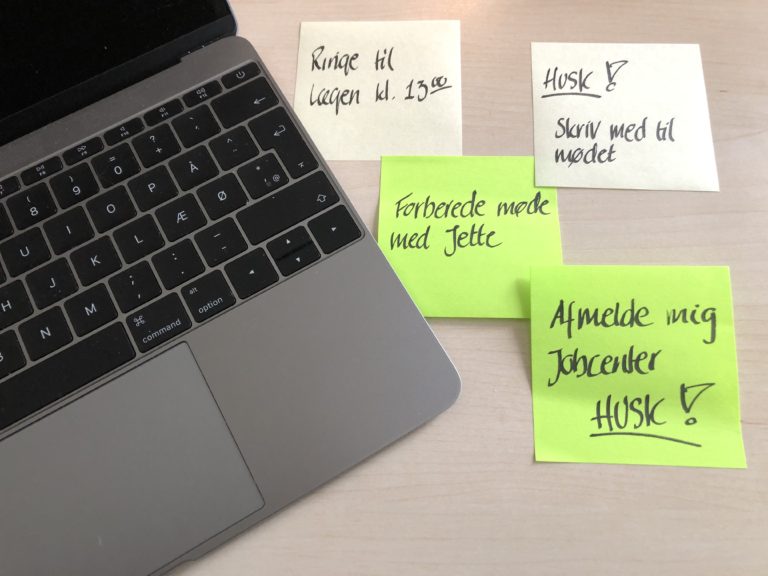 Ringe til
Lægen kl. 13⁰⁰
HUSK!
Skriv med til
mødet
Forberede møde
med Jette
Afmelde mig
Jobcenter
HUSK!
8 9 0 + ? = ´ `
U I O P Å ¨ ^
J K L Æ Ø ' * @
N M ; , : . _ -
⌘ command alt option